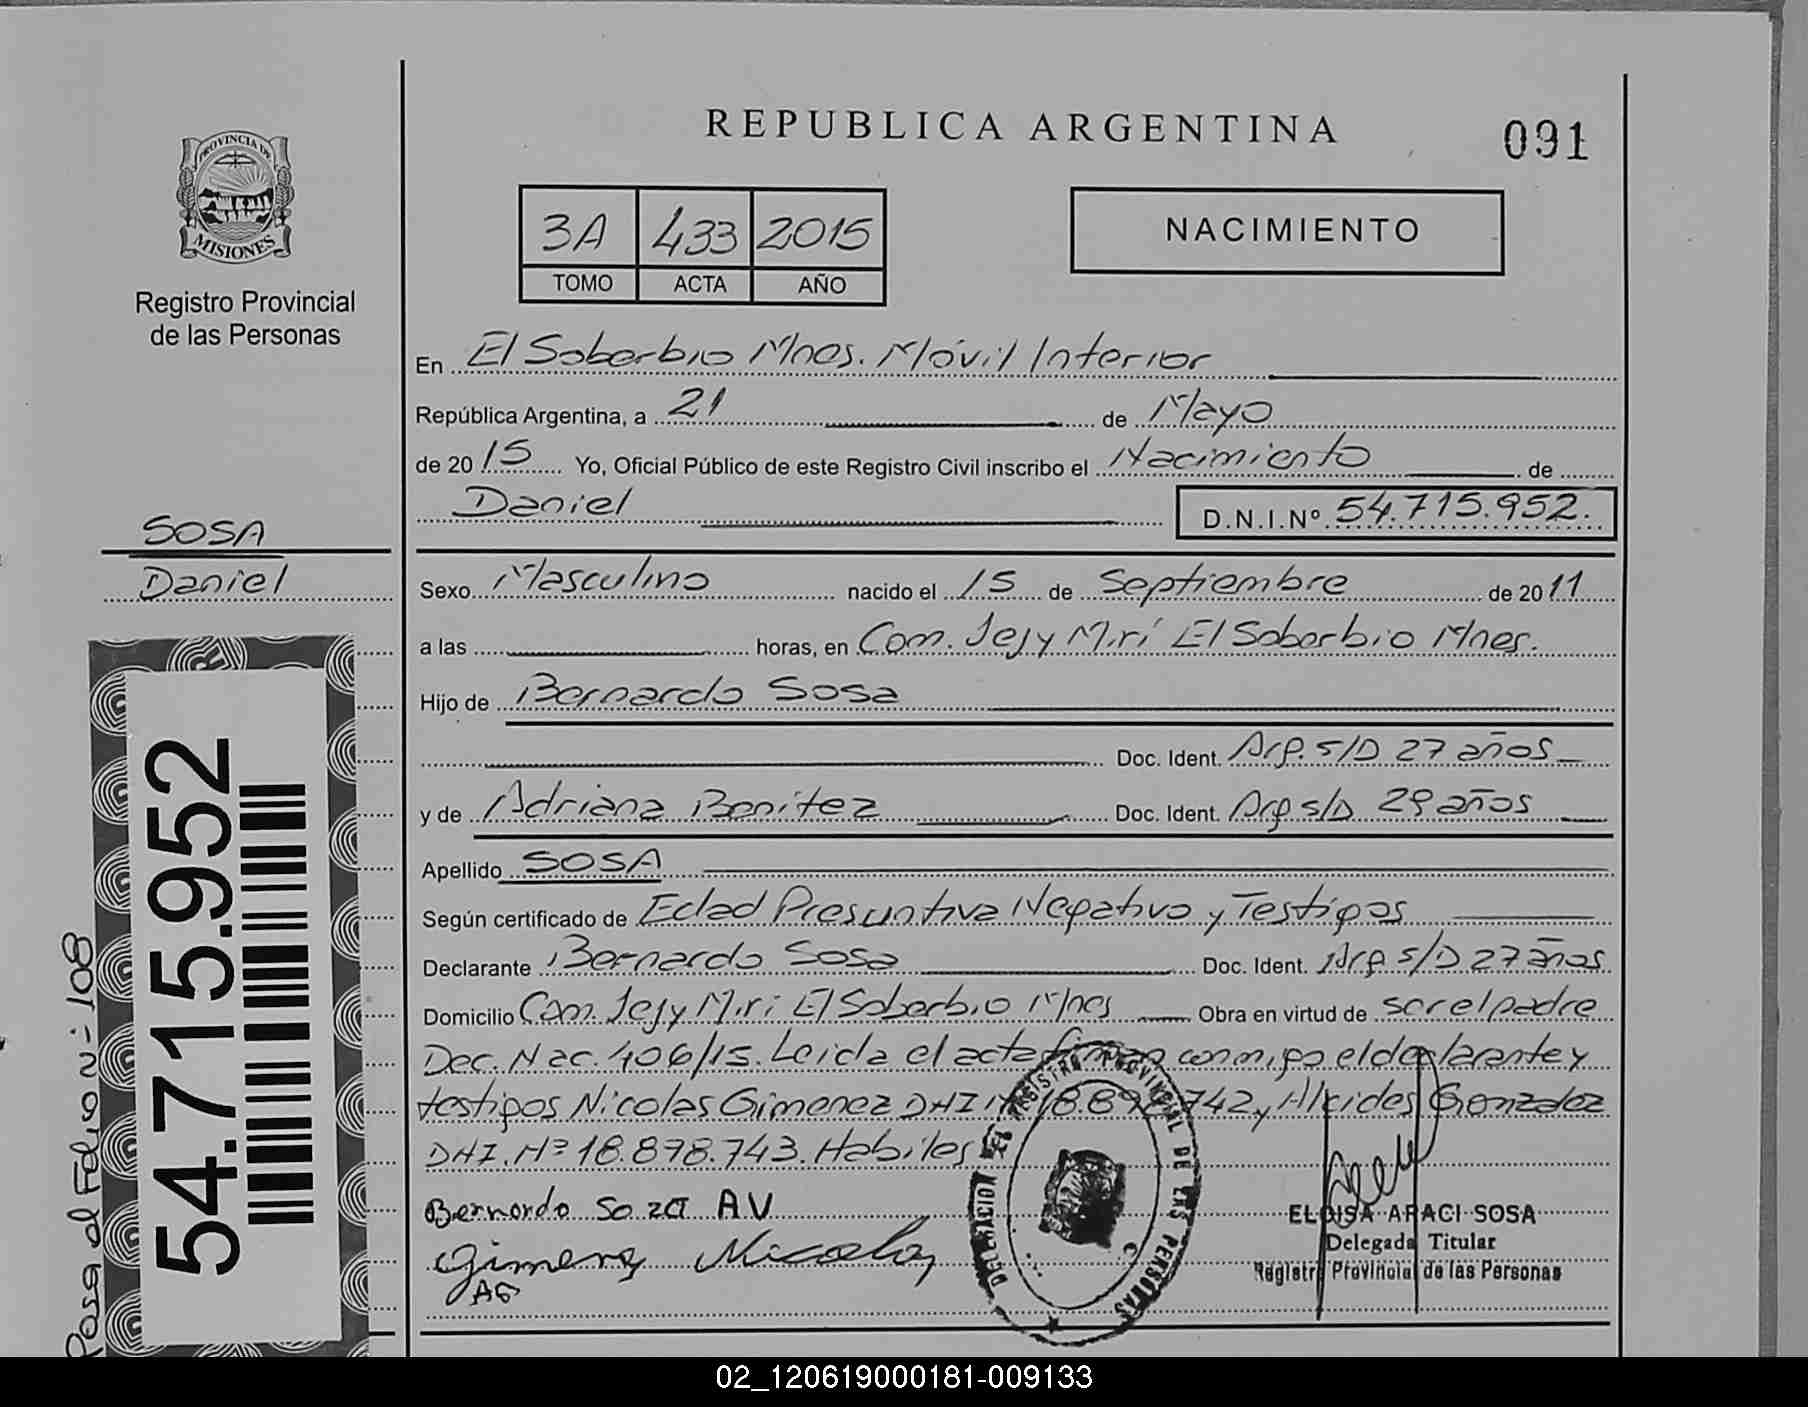 REPUBLICA ARGENTINA
091
PROVINCIA DE
MISIONES
Registro Provincial
de las Personas
3A 433 2015
TOMO ACTA AÑO
NACIMIENTO
En El Soberbio Mnes. Móvil Interior
República Argentina, a 21 de Mayo
de 2015 Yo, Oficial Público de este Registro Civil inscribo el Nacimiento de
Daniel D.N.I.Nº 54.715.952.
SOSA
Daniel
Sexo Masculino nacido el 15 de Septiembre de 2011
a las horas, en Com. Jejy Mirí El Soberbio Mnes.
Hijo de Bernardo Sosa
Doc. Ident. Arg. S/D 27 años
y de Adriana Benítez Doc. Ident. Arg S/D 29 años
Apellido SOSA
Según certificado de Edad Presuntiva Negativo y Testigos
Declarante Bernardo Sosa Doc. Ident. Arg S/D 27 años
Domicilio Com. Jejy Miri El Soberbio Mnes Obra en virtud de ser el padre
Dec. Nac. 406/15. Leida el acta firman conmigo el declarante y
testigos Nicolas Gimenez DNI Nº 18.898.742 y Alcides Gonzalez
DNI. Nº 18.898.743. Habiles
Bernardo Soza AV
Gimenez Nicolas
AG
DELEGACION EL REGISTRO PROVINCIAL DE LAS PERSONAS
ELOISA ARACI SOSA
Delegada Titular
Registro Provincial de las Personas
54.715.952
Pasa al Folio Nº 108
02_120619000181-009133